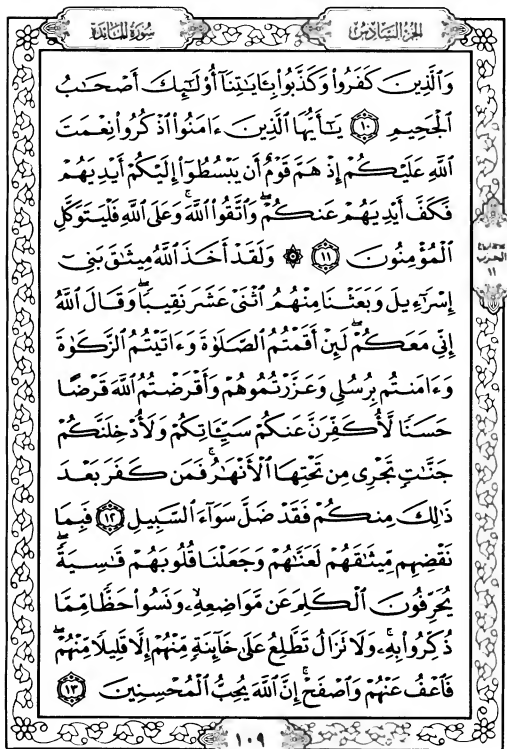 الجزء السادس
سورة المائدة
وَٱلَّذِينَ كَفَرُواْ وَكَذَّبُواْ بِـَٔايَٰتِنَآ أُوْلَٰٓئِكَ أَصْحَٰبُ
ٱلْجَحِيمِ ١٠ يَٰٓأَيُّهَا ٱلَّذِينَ ءَامَنُواْ ٱذْكُرُواْ نِعْمَتَ
ٱللَّهِ عَلَيْكُمْ إِذْ هَمَّ قَوْمٌ أَن يَبْسُطُوٓاْ إِلَيْكُمْ أَيْدِيَهُمْ
فَكَفَّ أَيْدِيَهُمْ عَنكُمْ ۖ وَٱتَّقُواْ ٱللَّهَ ۚ وَعَلَى ٱللَّهِ فَلْيَتَوَكَّلِ
ٱلْمُؤْمِنُونَ ١١ ۞ وَلَقَدْ أَخَذَ ٱللَّهُ مِيثَٰقَ بَنِىٓ
إِسْرَٰٓءِيلَ وَبَعَثْنَا مِنْهُمُ ٱثْنَىْ عَشَرَ نَقِيبًا ۖ وَقَالَ ٱللَّهُ
إِنِّى مَعَكُمْ ۖ لَئِنْ أَقَمْتُمُ ٱلصَّلَوٰةَ وَءَاتَيْتُمُ ٱلزَّكَوٰةَ
وَءَامَنتُم بِرُسُلِى وَعَزَّرْتُمُوهُمْ وَأَقْرَضْتُمُ ٱللَّهَ قَرْضًا
حَسَنًا لَّأُكَفِّرَنَّ عَنكُمْ سَيِّـَٔاتِكُمْ وَلَأُدْخِلَنَّكُمْ
جَنَّٰتٍ تَجْرِى مِن تَحْتِهَا ٱلْأَنْهَٰرُ ۚ فَمَن كَفَرَ بَعْدَ
ذَٰلِكَ مِنكُمْ فَقَدْ ضَلَّ سَوَآءَ ٱلسَّبِيلِ ١٢ فَبِمَا
نَقْضِهِم مِّيثَٰقَهُمْ لَعَنَّٰهُمْ وَجَعَلْنَا قُلُوبَهُمْ قَٰسِيَةً ۖ
يُحَرِّفُونَ ٱلْكَلِمَ عَن مَّوَاضِعِهِۦ ۙ وَنَسُواْ حَظًّا مِّمَّا
ذُكِّرُواْ بِهِۦ ۚ وَلَا تَزَالُ تَطَّلِعُ عَلَىٰ خَآئِنَةٍ مِّنْهُمْ إِلَّا قَلِيلًا مِّنْهُمْ ۖ
فَٱعْفُ عَنْهُمْ وَٱصْفَحْ ۚ إِنَّ ٱللَّهَ يُحِبُّ ٱلْمُحْسِنِينَ ١٣
الحزب
١١
١٠٩